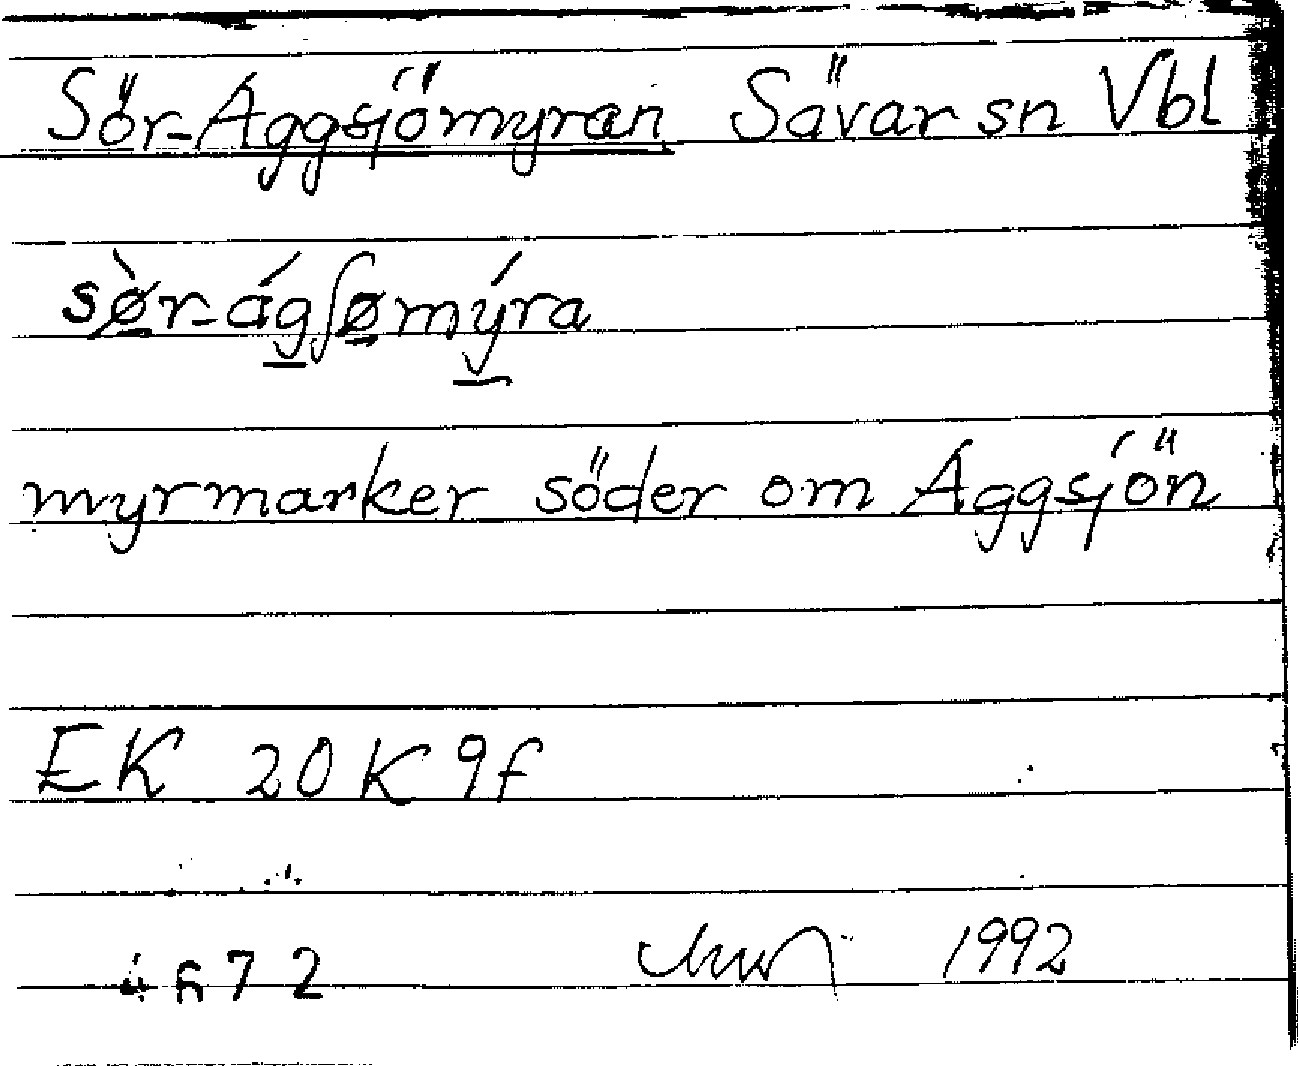 Sör-Aggsjömyran Sävar sn Vbl
sø̀r-ágʃømýra
myrmarker söder om Aggsjön
EK 20K 9f
4672
1992